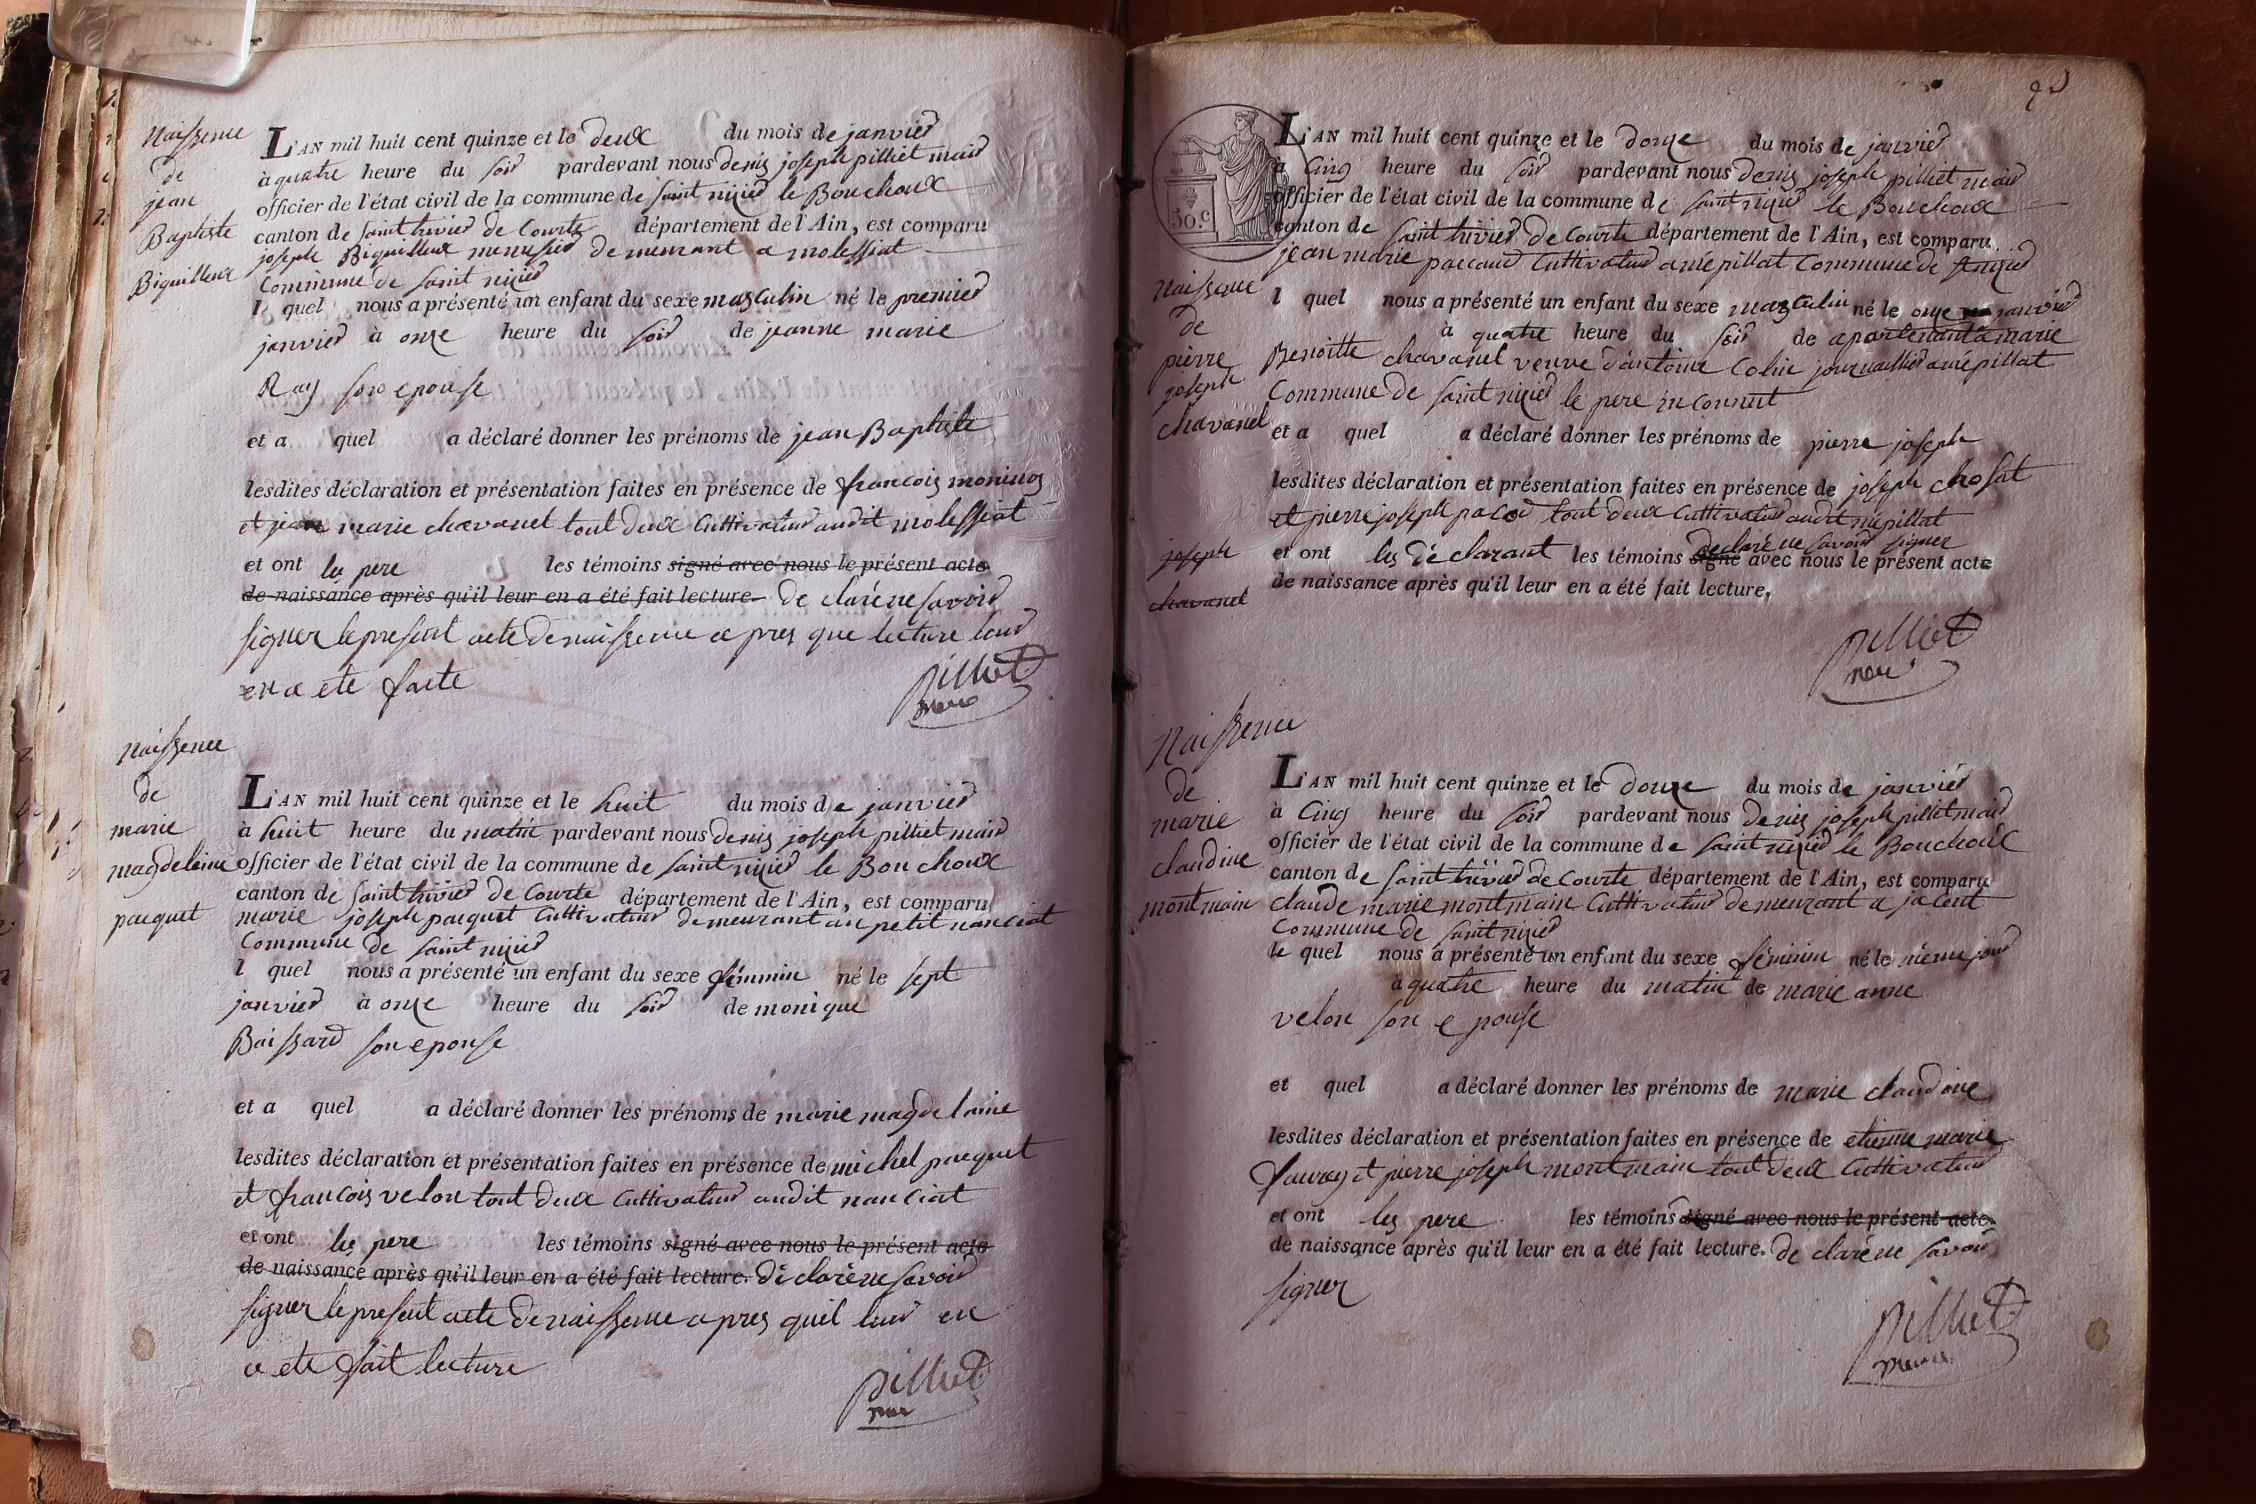 Naissence
de
jean
Baptiste
Biguilleux
L'AN mil huit cent quinze et le deux du mois de janvier
à quatre heure du soir pardevant nous denis joseph pilliet maire
officier de l'état civil de la commune de saint nizier le Bouchoux
canton de saint trivier de Courte département de l'Ain, est comparu
joseph Biguilleux menusier demeurant a molessiat
Commune de saint nizier
l quel nous a présenté un enfant du sexe masculin né le premier
janvier à onze heure du soir de jeanne marie
Ray son epouse
et a quel a déclaré donner les prénoms de jean Baptiste
lesdites déclaration et présentation faites en présence de francois moninos
et jean marie chavanet tout deux Cultivateur audit molessiat
et ont les pere les témoins signé avec nous le présent acte
de naissance après qu'il leur en a été fait lecture declaré ne savoir
signer le present acte de naissence apres que lecture leur
en a ete faite
pilliet
maire
Naissence
de
marie
magdeleine
pacquet
L'AN mil huit cent quinze et le huit du mois de janvier
à huit heure du matin pardevant nous denis joseph pilliet maire
officier de l'état civil de la commune de saint nizier le Bouchoux
canton de saint trivier de Courte département de l'Ain, est comparu
marie joseph pacquet Cultivateur demeurant au petit nanciat
Commune de saint nizier
l quel nous a présenté un enfant du sexe féminin né le sept
janvier à onze heure du soir de monique
Baissard son epouse
et a quel a déclaré donner les prénoms de marie magdelaine
lesdites déclaration et présentation faites en présence de michel pacquet
et francois velon tout deux Cultivateur audit nanciat
et ont les pere les témoins signé avec nous le présent acte
de naissance après qu'il leur en a été fait lecture. déclaré ne savoir
signer le present acte de naissence apres quil leur en
a ete fait lecture
pilliet
maire
50.c
Naissence
de
pierre
joseph
chavanel
joseph
chavanel
L'AN mil huit cent quinze et le douze du mois de janvier
à Cinq heure du soir pardevant nous denis joseph pilliet maire
officier de l'état civil de la commune de saint nizier le Bouchoux
canton de saint trivier de Courte département de l'Ain, est comparu
jean marie paccaud Cultivateur a mépillat Commune de st nizier
l quel nous a présenté un enfant du sexe masculin né le onze janvier
à quatre heure du soir de apartenant a marie
Benoitte chavanel veuve d'antoine Colin journallier a mépillat
Commune de saint nizier le pere inconnut
et a quel a déclaré donner les prénoms de pierre joseph
lesdites déclaration et présentation faites en présence de joseph chosat
et pierre joseph pacod tout deux Cultivateur audit mépillat
declaré ne savoir signer
et ont les déclarant les témoins signé avec nous le présent acte
de naissance après qu'il leur en a été fait lecture.
pilliet
maire
Naissence
de
marie
claudine
montmain
L'AN mil huit cent quinze et le douze du mois de janvier
à Cinq heure du soir pardevant nous denis joseph pilliet maire
officier de l'état civil de la commune de saint nizier le Bouchoux
canton de saint trivier de Courte département de l'Ain, est comparu
claude marie montmain Cultivateur demeurant a jacent
Commune de saint nizier
le quel nous a présenté un enfant du sexe féminin né le même jour
à quatre heure du matin de marie anne
velon son epouse
et quel a déclaré donner les prénoms de marie claudine
lesdites déclaration et présentation faites en présence de etienne marie
favrey et pierre joseph montmain tout deux Cultivateur
et ont les pere les témoins signé avec nous le présent acte
de naissance après qu'il leur en a été fait lecture. declaré ne savoir
signer
pilliet
maire